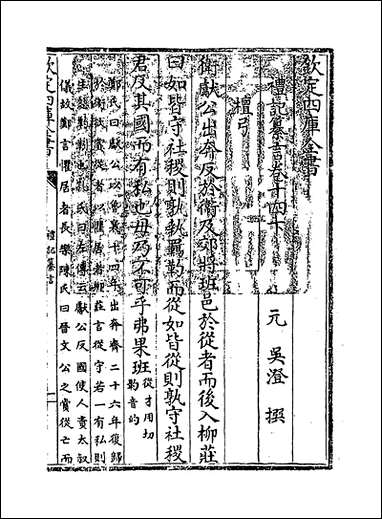 欽定四庫全書
禮記纂言卷十四下
元 吳澄 撰
檀弓
衛獻公出奔反於衛及郊將班邑於從者而後入柳莊
曰如皆守社稷則孰執羈靮而從如皆從則孰守社稷
君反其國而有私也毋乃不可乎弗果班 從才用切 靮音的
鄭氏曰獻公以魯襄十四年出奔齊二十六年復歸
於衛欲賞從者以懼居者柳莊言從守若一有私則
生怨靮紖也孔氏曰左傳云獻公反國使人責大叔
儀故鄭言懼居者長樂陳氏曰晉文公之賞從亡而
欽定四庫全書
禮記纂言
一